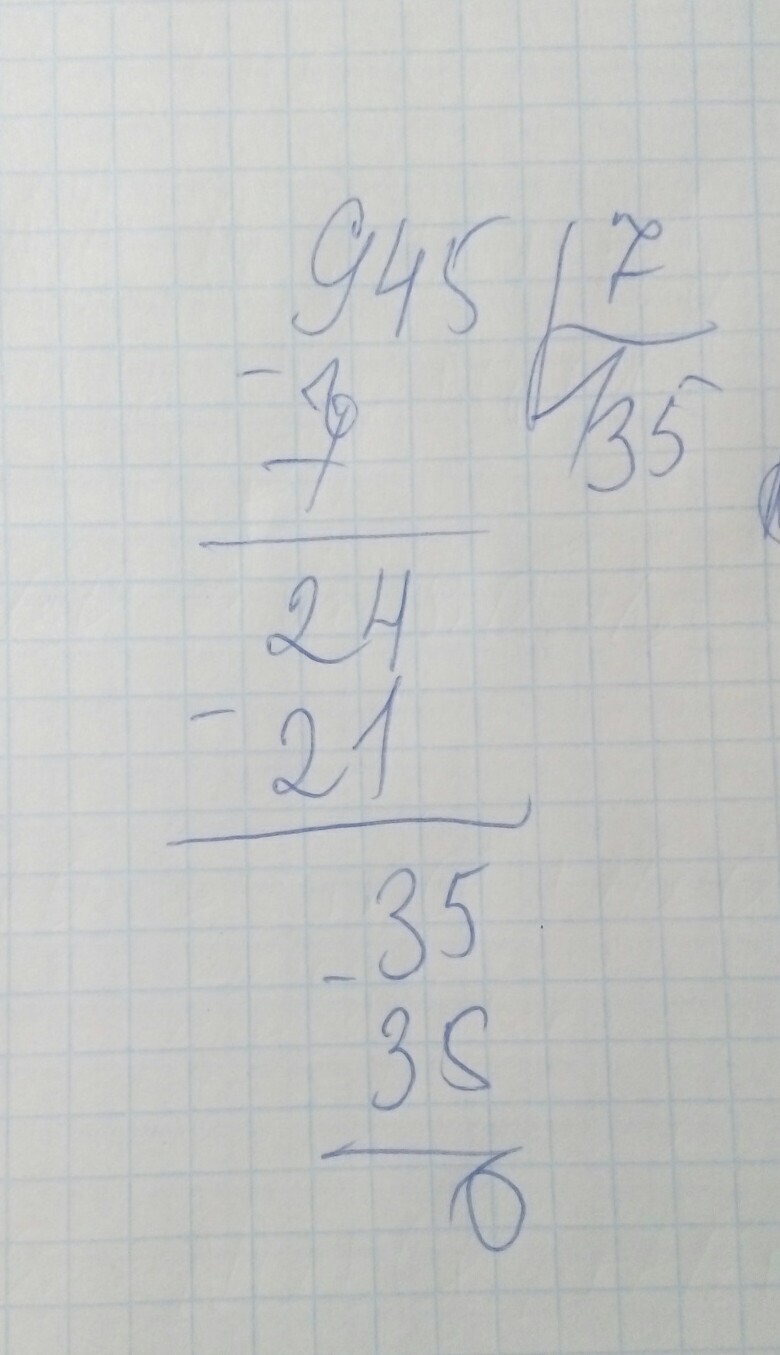 945 7
- 7 135
24
- 21
- 35
35
0